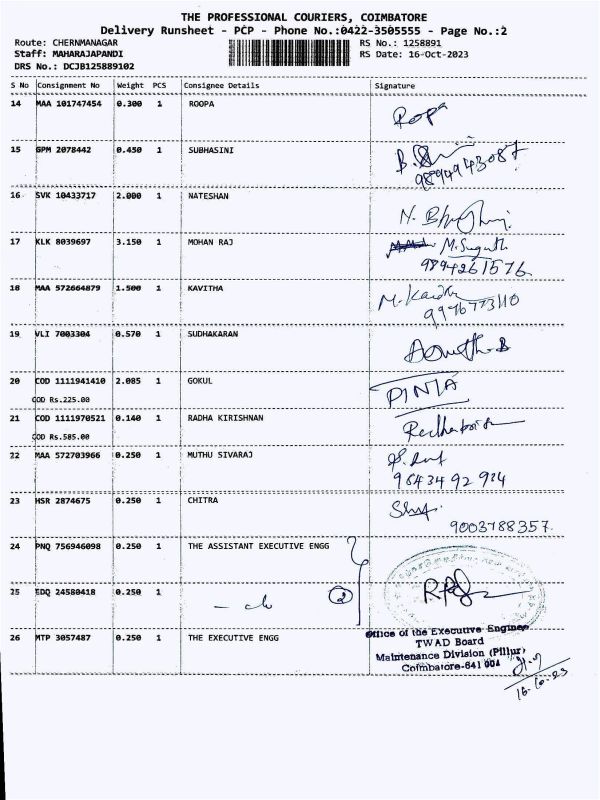 THE PROFESSIONAL COURIERS, COIMBATORE
Delivery Runsheet - PCP - Phone No.:0422-3505555 - Page No.:2
Route: CHERNMANAGAR RS No.: 1258891
Staff: MAHARAJAPANDI RS Date: 16-Oct-2023
DRS No.: DCJB125889102
S No Consignment No Weight PCS Consignee Details Signature
14 MAA 101747454 0.300 1 ROOPA
15 GPM 2078442 0.450 1 SUBHASINI
9894943087
16 SVK 10433717 2.000 1 NATESHAN
17 KLK 8039697 3.150 1 MOHAN RAJ
9894261576
18 MAA 572664879 1.500 1 KAVITHA
9976773110
19 VLI 7003304 0.570 1 SUDHAKARAN
20 COD 1111941410 2.085 1 GOKUL
COD Rs.225.00
21 COD 1111970521 0.140 1 RADHA KIRISHNAN
COD Rs.585.00
22 MAA 572703966 0.250 1 MUTHU SIVARAJ
9843492984
23 HSR 2874675 0.250 1 CHITRA
9003788357
24 PNQ 756946098 0.250 1 THE ASSISTANT EXECUTIVE ENGG
25 EDQ 24580418 0.250 1 2
26 MTP 3057487 0.250 1 THE EXECUTIVE ENGG
Office of the Executive Engineer
TWAD Board
Maintenance Division (Pillur)
Coimbatore-641 004
16-10-23